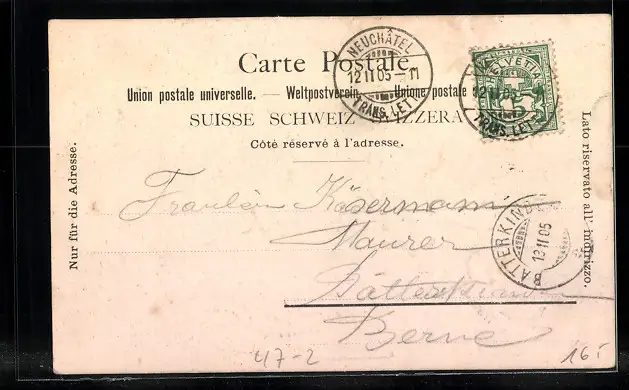 Carte Postale
Union postale universelle. — Weltpostverein. — Unione postale
SUISSE SCHWEIZ SVIZZERA
Côté réservé à l'adresse.
Nur für die Adresse.
Lato riservato all' indirizzo.
NEUCHÂTEL
12 II 05 – 11
TRANS. LETT.
HELVETIA
12 II 05
TRANS. LETT.
BATTERKIND
13 II 05
Fräulein Käsermann
Maurer
Bätterkinden
Berne
47-2
16